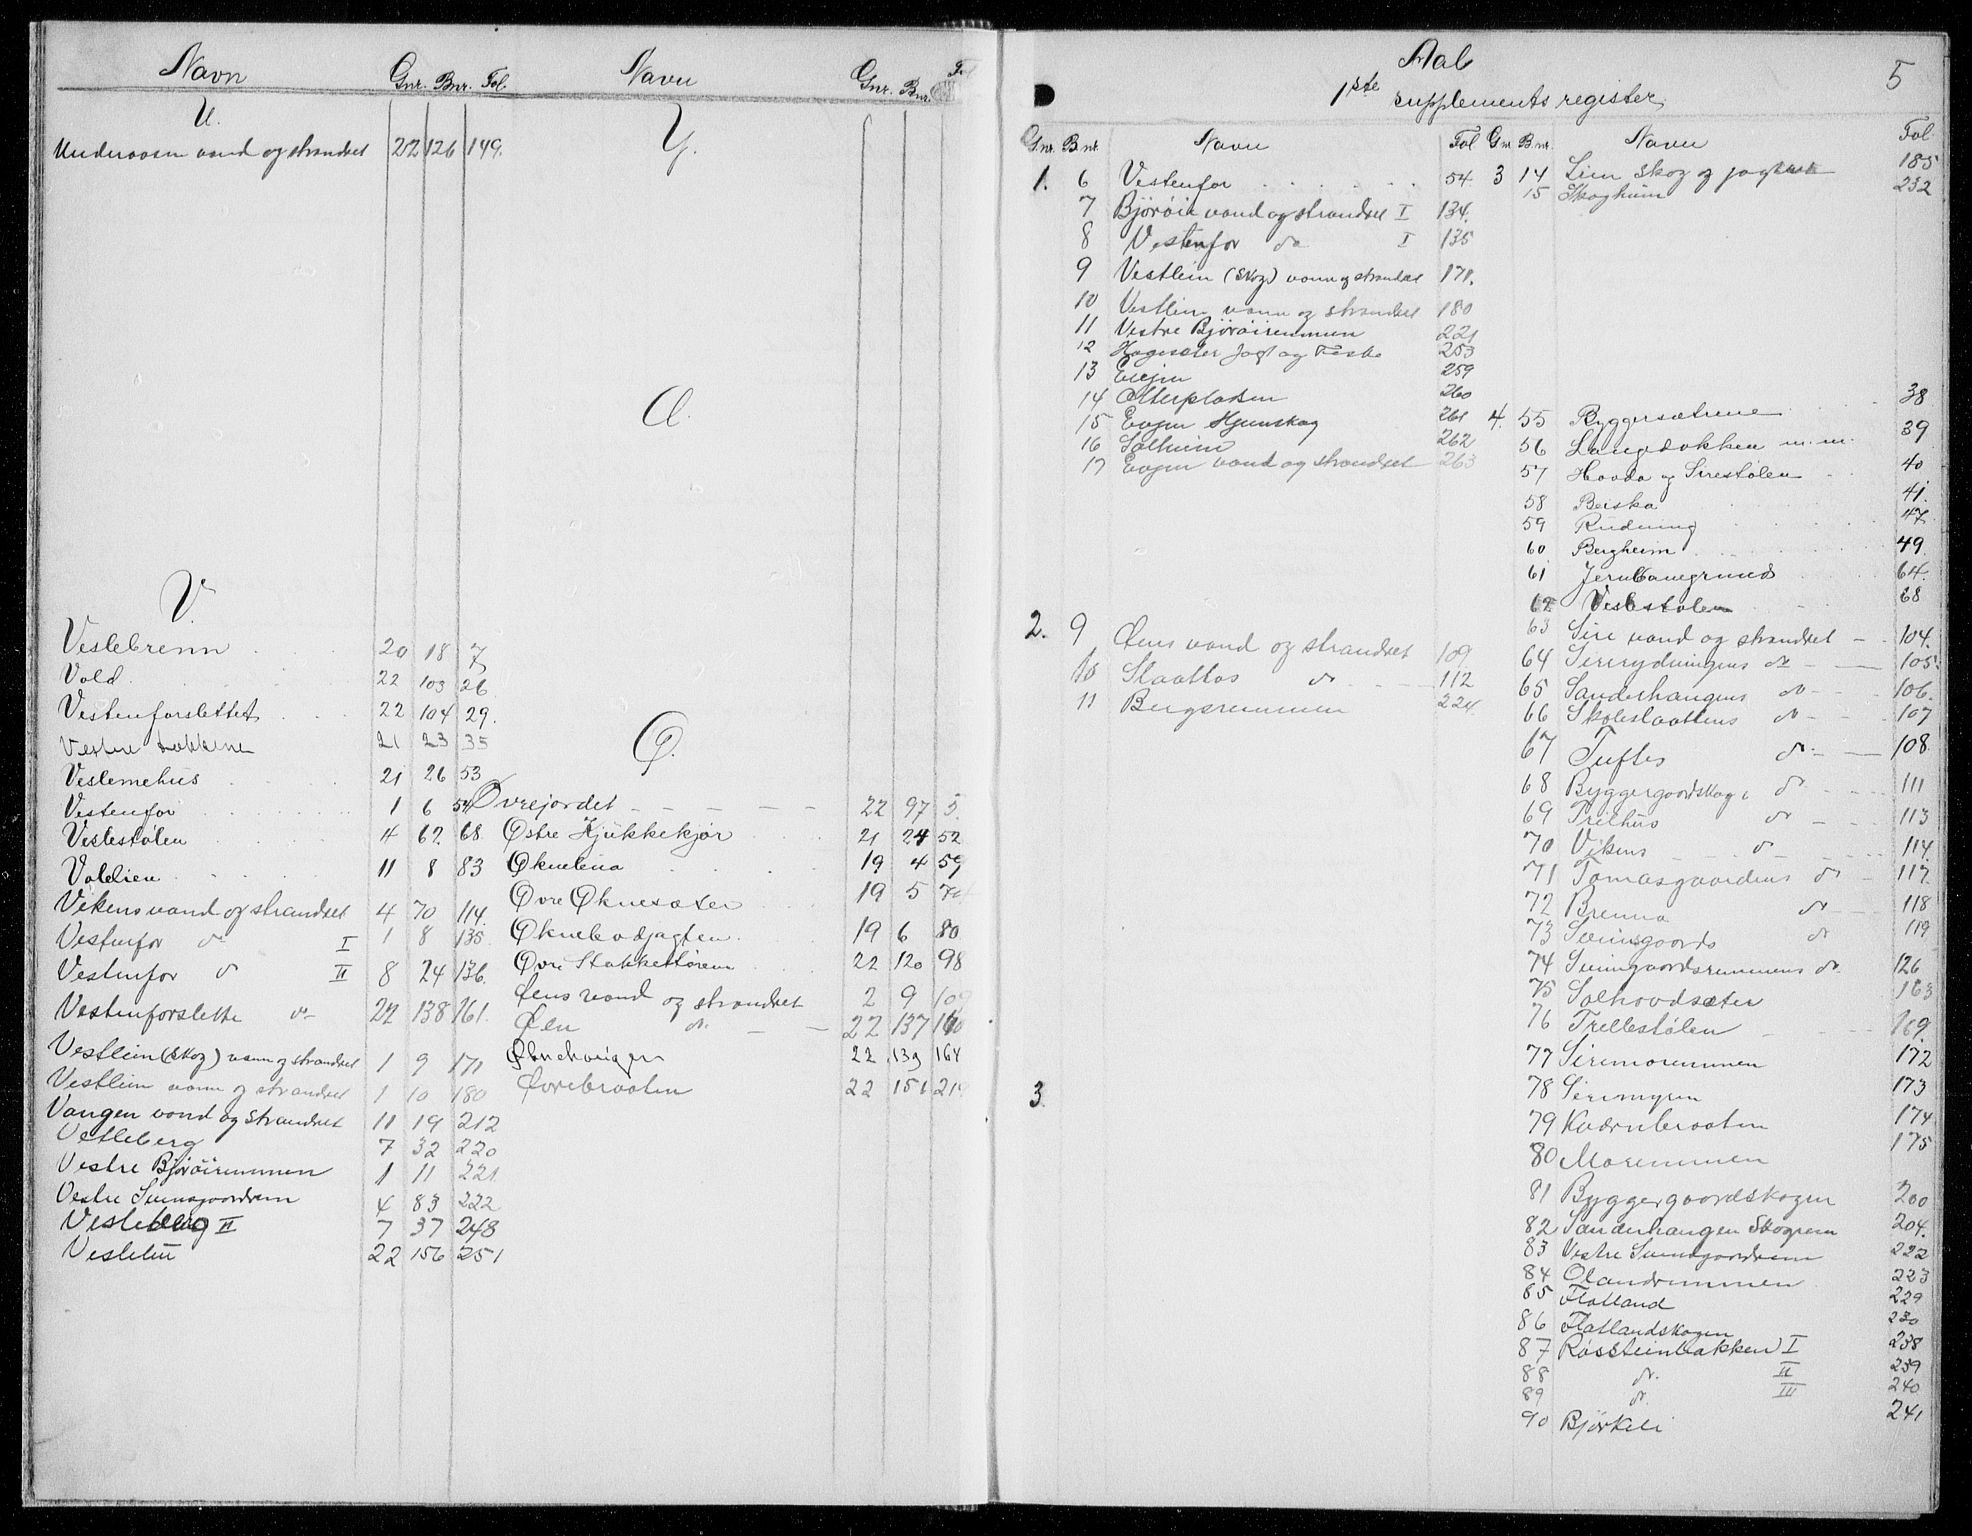 Navn Gnr. Bnr. Fol
U.
Underaasen vand og strandret 22 126 149.
V.
Veslebrenn 20 18 7
Vold 22 103 26
Vestenforslettet 22 104 29.
Vestre Løkkene 21 23 35
Veslemehus 21 26 53
Vestenfor 1 6 54
Veslestølen 4 62 68.
Voldlien 11 8 83
Vikens vand og strandret 4 70 114.
Vestenfor do I 1 8 135.
Vestenfor do II 8 24 136.
Vestenforslette do 22 138 161.
Vestlein (skog) vann og strandret 1 9 171
Vestlein vann og strandret 1 10 180
Vangen vand og strandret 11 19 212
Vetleberg 7 32 220
Vestre Bjørøiremmen 1 11 221
Vestre Sveinsgaardrem 4 83 222
Vesleberg II 7 37 248
Vesletu 22 156 251
Navn Gnr. Bnr. Fol
Y.
Æ.
Ø.
Øvrejordet 22 97 5.
Østre Hjukkekjør 21 24 52
Øknelena 19 4 59
Øvre Øknesæter 19 5
Øknebodjagten 19 6 80
Øvre Stakkestøren 22 120 98
Øens vand og strandret 2 9 109
Øen do. 22 137 160
Øknehaugen 22 139 164
Øvrebraaten 22 151 214
Aal 5
1ste supplements register
Gnr. Bnr. Navn Fol
1. 6 Vestenfor 54
7 Bjørøie vand og strandret I 134.
8 Vestenfor do I 135
9 Vestlein (skog) vann og strandret 171.
10 Vestlein vann og strandret 180
11 Vestre Bjørøiremmen 221
12 Hagesæter Jagt og Fiske 253
13 Evejen 259
14 Otterpladsen 260
15 Evjen Hjemskog 261
16 Solheim 262
17 Evjen vand og strandret 263
2. 9 Øens vand og strandret 109
10 Slaattos do 112
11 Bergsremmen 224.
3.
Gnr Bnr. Navn Fol.
3 14 Lien Skog og jagtret 185
15 Skogheim 232
4. 55 Byggersætrene 38
56 Langedokken m.m. 39
57 Hovda og Sirestølen 40
58 Beiska 41.
59 Rudning 47
60 Bergheim 49.
61 Jernbanegrund 64.
62 Veslestølen 68
63 Sire vand og strandret 104.
64 Sirerydningens do 105.
65 Sanderhangens do 106.
66 Skoleslaattens do 107
67 Tuftes do 108
68 Byggergaardskog do 111
69 Trilhus do 113
70 Vikens do 114.
71 Tomasgaardens do 117.
72 Brenna do 118
73 Sveinsgaards do 119
74 Sveinsgaardsremmens do. 126
75 Solhovdsæter 163
76 Trellestølen 169.
77 Siremoremmen 172
78 Siremyren 173
79 Kværnbraaten 174
80 Moremmen 175
81 Byggergaardskogen 200
82 Sanderhangen Skogrem 204.
83 Vestre Sveinsgaardrem 222
84 Olandremmen 223
85 Flatland 229
86 Flatlandskogen 230
87 Røssteinbakken I 238
88 do. II 239
89 do. III 240
90 Bjørkeli 241